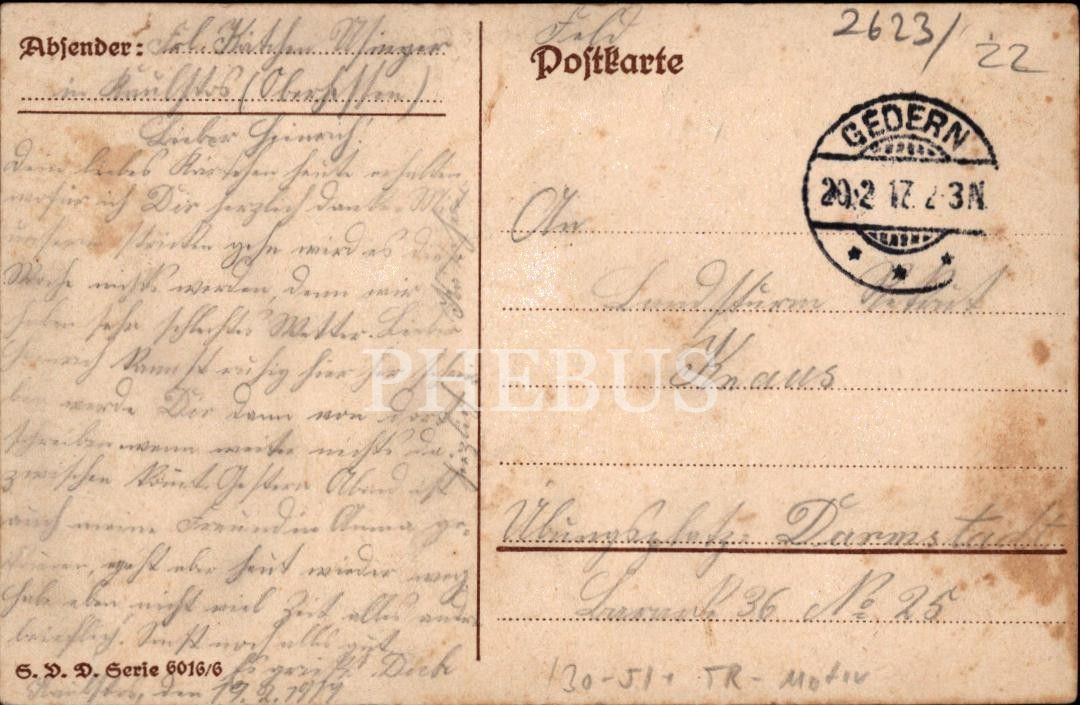 Absender: Frl. Kätchen
in Kaulstos (Oberhessen)
Lieber Heinrich!
Dein liebes Kärtchen heute erhalten
wofür ich Dir herzlich danke. Mit
unserem stricken gehn wird es diese
Woche nichts werden, denn wir
haben sehr schlechtes Wetter. Lieber
Heinrich kannst ruhig hier her schrei-
ben werde Dir dann von dort
schreiben wenn weiter nichts da-
zwischen kömt. Gestern Abend ist
auch meine Freundin Anna ge-
kommen, geht aber heut wieder weg
habe eben nicht viel Zeit alles andre
brieflich. Sonst noch alles gut
Es grüßt Dich
Kaulstos, den 19.2.1917
herzlich
S. V. D. Serie 6016/6
Feld
Postkarte
2623/
22
GEDERN
20.2.17. 2-3N
An
Landsturm Rekrut
Knaus
Übungsplatz: Darmstadt
Barack 36 No 25
130-51+ TR- Motiv
PHEBUS